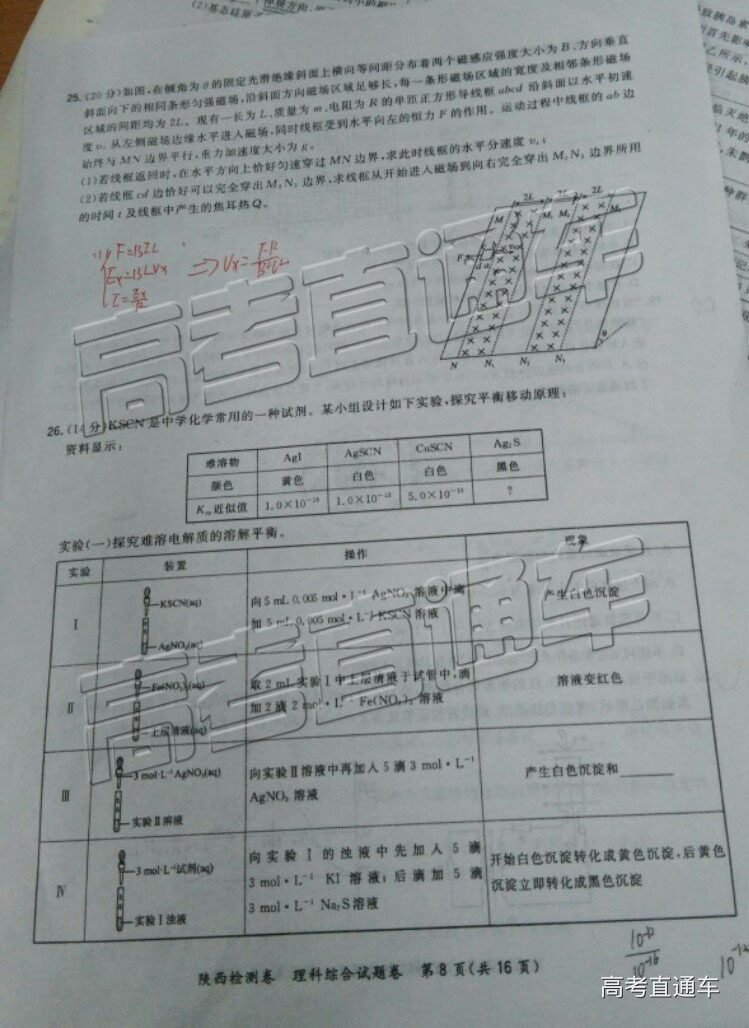 (2)基态硅原子
25.(20分)如图,在倾角为θ的固定光滑绝缘斜面上横向等间距分布着两个磁感应强度大小为B、方向垂直
斜面向下的相同条形匀强磁场,沿斜面方向磁场区域足够长,每一条形磁场区域的宽度及相邻条形磁场
区域的间距均为2L。现有一长为L、质量为m、电阻为R的单匝正方形导线框abcd沿斜面以水平初速
度v₀从左侧磁场边缘水平进入磁场,同时线框受到水平向左的恒力F的作用。运动过程中线框的ab边
始终与MN边界平行,重力加速度大小为g。
(1)若线框返回时,在水平方向上恰好匀速穿过MN边界,求此时线框的水平分速度vₓ;
(2)若线框cd边恰好可以完全穿出M₃N₃边界,求线框从开始进入磁场到向右完全穿出M₃N₃边界所用
的时间t及线框中产生的焦耳热Q。
2L 2L 2L
M M₁ M₂ M₃
F
N N₁ N₂ N₃
θ
(1) F=BIL
Eₓ=BLVₓ ⇒ Vₓ=FR/B²L²
I=Eₓ/R
26.(14分)KSCN是中学化学常用的一种试剂。某小组设计如下实验,探究平衡移动原理:
资料显示:
难溶物 AgI AgSCN CuSCN Ag₂S
颜色 黄色 白色 白色 黑色
Kₛₚ近似值 1.0×10⁻¹⁶ 1.0×10⁻¹² 5.0×10⁻¹⁶ ?
实验(一)探究难溶电解质的溶解平衡。
实验 装置 操作 现象
Ⅰ
KSCN(aq)
AgNO₃(aq)
向5 mL 0.005 mol·L⁻¹ AgNO₃溶液中滴
加5 mL 0.005 mol·L⁻¹ KSCN溶液
产生白色沉淀
Ⅱ
Fe(NO₃)₃(aq)
上层清液(aq)
取2 mL实验Ⅰ中上层清液于试管中,滴
加2滴2 mol·L⁻¹ Fe(NO₃)₃溶液
溶液变红色
Ⅲ
3 mol·L⁻¹ AgNO₃(aq)
实验Ⅱ溶液
向实验Ⅱ溶液中再加入5滴3 mol·L⁻¹
AgNO₃溶液
产生白色沉淀和______
Ⅳ
3 mol·L⁻¹试剂(aq)
实验Ⅰ浊液
向实验Ⅰ的浊液中先加入5滴
3 mol·L⁻¹ KI溶液;后滴加5滴
3 mol·L⁻¹ Na₂S溶液
开始白色沉淀转化成黄色沉淀,后黄色
沉淀立即转化成黑色沉淀
10⁻¹²/10⁻¹⁶
陕西检测卷 理科综合试题卷 第8页(共16页)
高考直通车
高考直通车
高考直通车